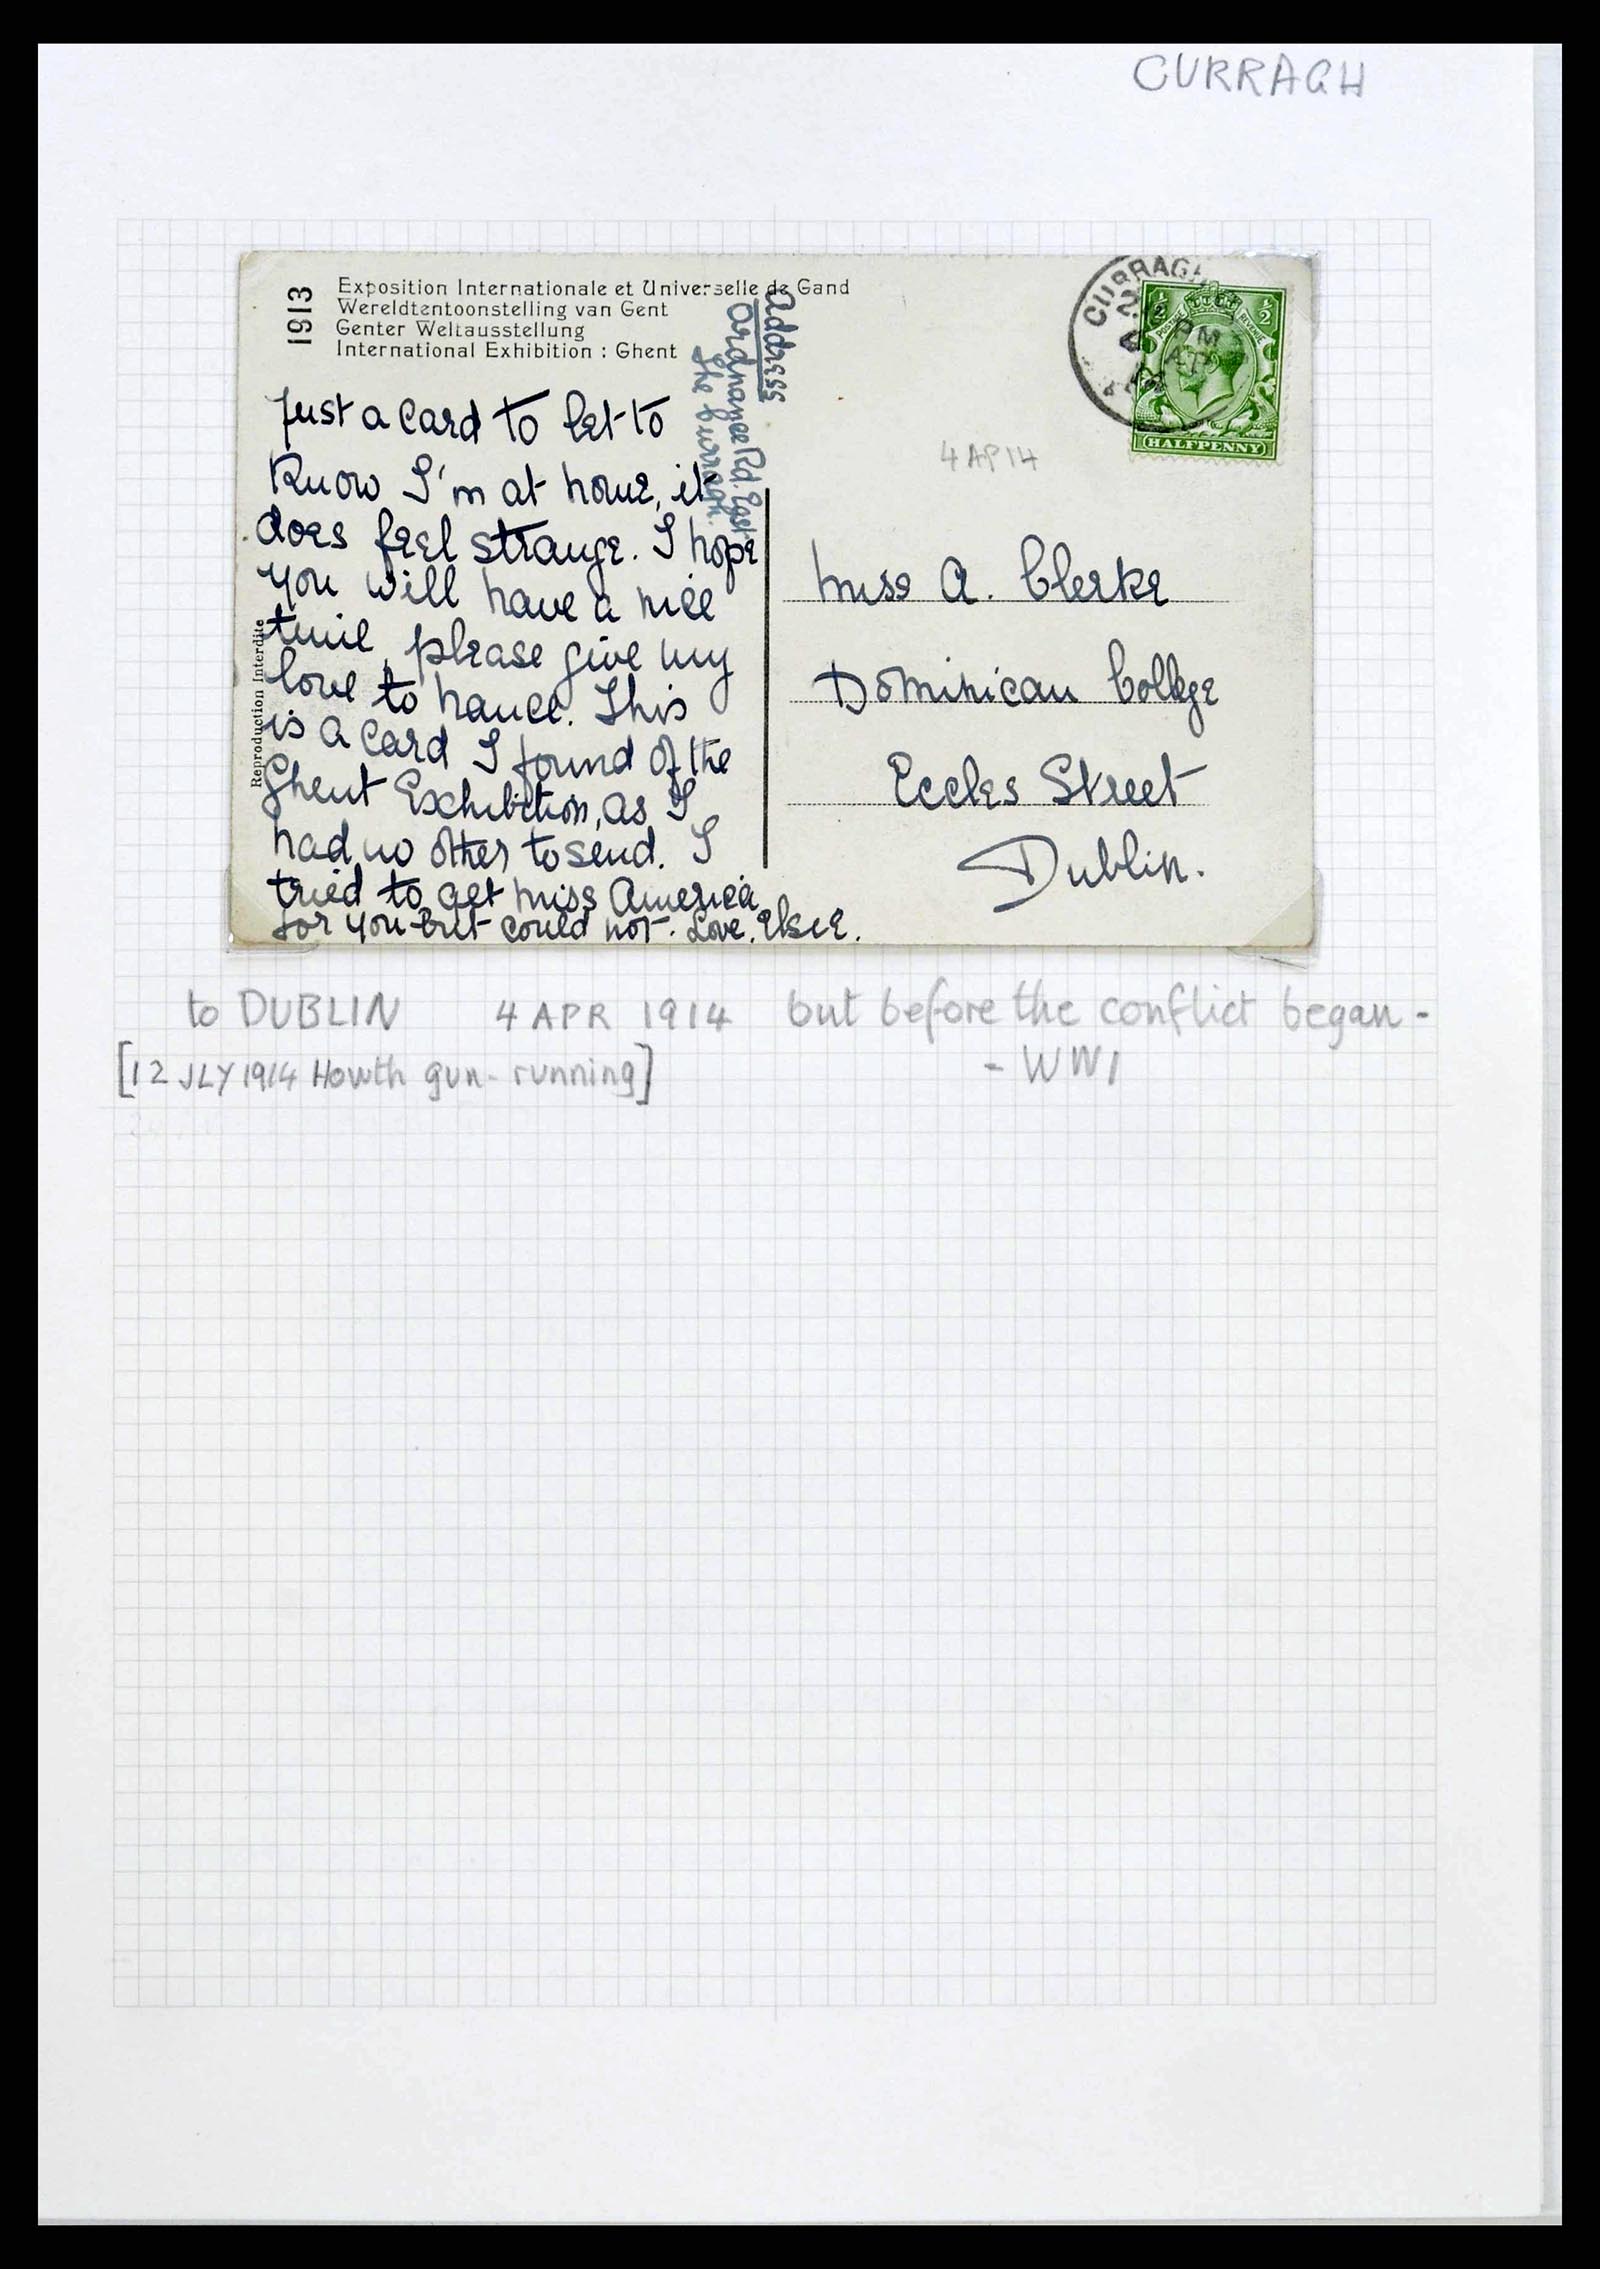 CURRAGH
1913
Exposition Internationale et Universelle de Gand
Wereldtentoonstelling van Gent
Genter Weltausstellung
International Exhibition : Ghent
Address
Ordnance Rd. East
The Curragh.
Just a Card to let to
Know I'm at home, it
does feel strange. I hope
you will have a nice
time, please give my
love to
This
is a Card I found of the
Ghent Exhibition, as I
had no other to send. I
tried to get Miss America
for you but could not. Love. Elsie.
Reproduction Interdite
CURRAGH
PM
½
½
POSTAGE
REVENUE
HALFPENNY
4 AP 14
Miss A. Clerke
Dominican College
Eccles Street
Dublin.
to DUBLIN 4 APR 1914 but before the conflict began -
[12 JLY 1914 Howth gun-running]
- WW1